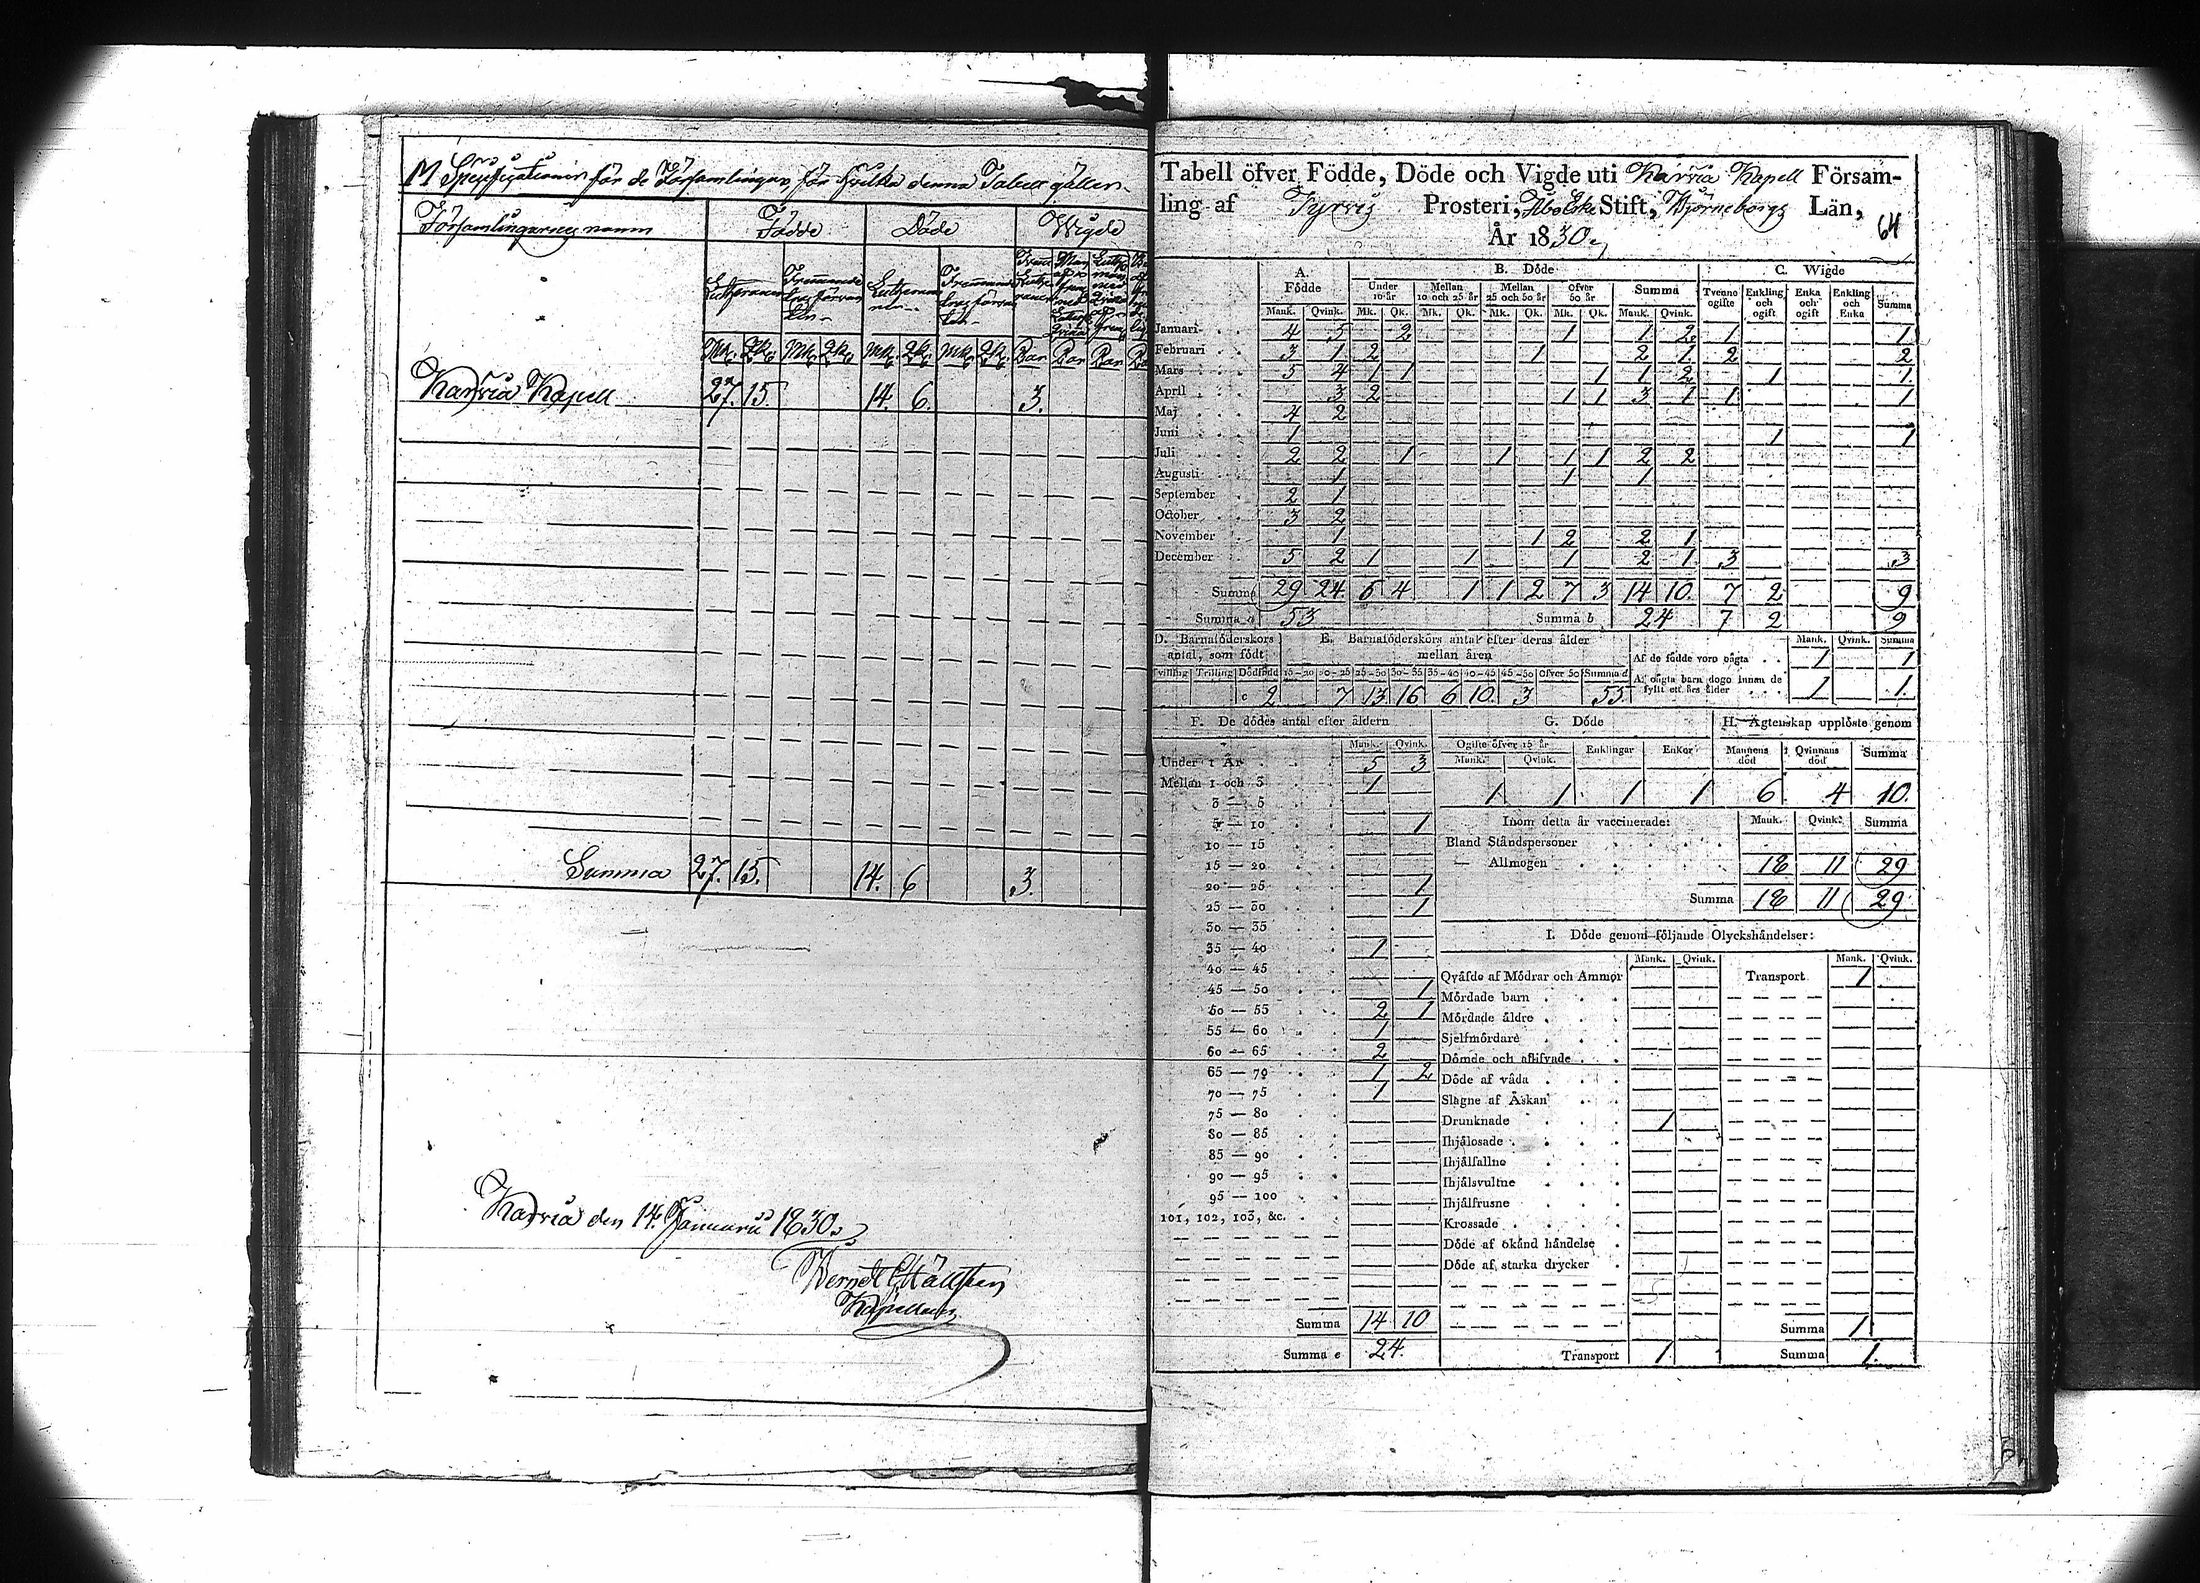 M Specificationer för de Församlingar för hvilka denna Tabell gäller.
Församlingarnes namn Födde Döde Wigde
Lutheraner Främmande Lutheraner Främmande
Mk. Qk. Mk. Qk. Mk. Qk. Mk. Qk. Par Par Par
Karvia Kapell 27. 15. 14. 6. 3.
Summa 27. 15. 14. 6 3.
Karvia den 14. Januarii 1830.
Berndt Hällsten
Kapellan
Tabell öfver Födde, Döde och Vigde uti Karvia Kapell Församling
ling af Tyrvis Prosteri, Åbo Stift, Björneborgs Län,
År 1830. 64
A. B. Döde C. Wigde
Födde Under 10 år Mellan 10 och 25 år Mellan 25 och 50 år Öfver 50 år Summa Tvenne ogifte Enkling och ogift Enka och ogift Enkling och Enka Summa
Mank. Qvink. Mk. Qk. Mk. Qk. Mk. Qk. Mk. Qk. Mank. Qvink.
Januari 4 5 2 1 1 2 1 1
Februari 3 1 2 1 2 1 2 2
Mars 5 4 1 1 1 1 2 1 1
April 3 2 1 1 3 1 1 1
Maj 4 2
Juni 1 1 1
Juli 2 2 1 1 1 1 2 2
Augusti 1 1 1
September 2 1
October 3 2
November 1 1 2 2 1
December 5 2 1 1 1 2 1 3 3
Summa 29 24 6 4 1 1 2 7 3 14 10 7 2 9
Summa a 53 Summa b 24 7 2 9
D. Barnaföderskors antal, som födt E. Barnaföderskors antal efter deras ålder mellan åren Mank. Qvink. Summa
Af de födde voro oägta 1 1
Tvilling Trilling Dödfödd 15-20 20-25 25-30 30-35 35-40 40-45 45-50 Öfver 50 Summa d Af oägta barn dogo innan de fyllt ett års ålder 1 1.
c 2 7 13 16 6 10. 3 55.
F. De dödes antal efter åldern G. Döde H. Ägtenskap upplöste genom
Mank. Qvink. Ogifte öfver 15 år Enklingar Enkor Mannens död Qvinnans död Summa
Under 1 År 5 3 Mank. Qvink.
Mellan 1 och 3 1 1 1 1 1 6 4 10.
3 — 5
5 — 10 1 Inom detta år vaccinerade: Mank. Qvink. Summa
10 — 15 Bland Ståndspersoner
15 — 20 — Allmogen 18 11 29
20 — 25 1
25 — 30 1 Summa 18 11 29
30 — 35
35 — 40 1 I. Döde genom följande Olyckshändelser:
Mank. Qvink. Mank. Qvink.
40 — 45 Qväfde af Mödrar och Ammor Transport 1
45 — 50 1 Mördade barn
50 — 55 2 1 Mördade äldre
55 — 60 1 Sjelfmördare
60 — 65 2 Dömde och aflifvade
65 — 70 1 2 Döde af våda
70 — 75 1 Slagne af Åskan
75 — 80 Drunknade 1
80 — 85 Ihjälosade
85 — 90 Ihjälfallne
90 — 95 Ihjälsvultne
95 — 100 Ihjälfrusne
101, 102, 103, &c. Krossade
Döde af okänd händelse
Döde af starka drycker
Summa 14 10 Summa 1
Summa e 24. Transport 1. Summa 1.